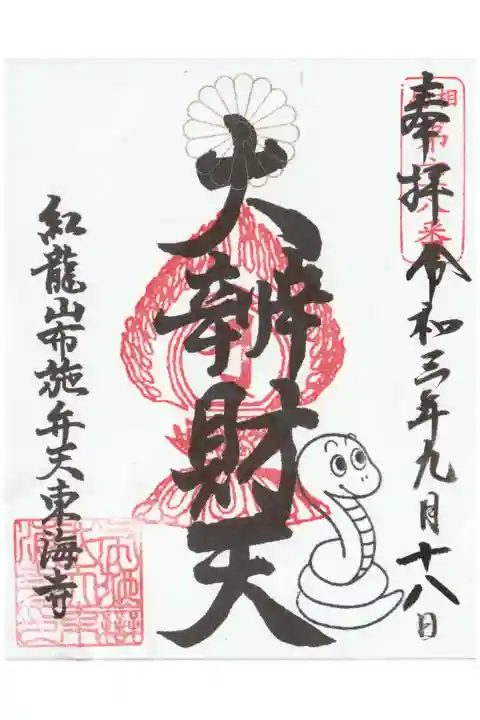 奉拝
令和三年九月十八日
大辨財天
紅龍山布施弁天東海寺